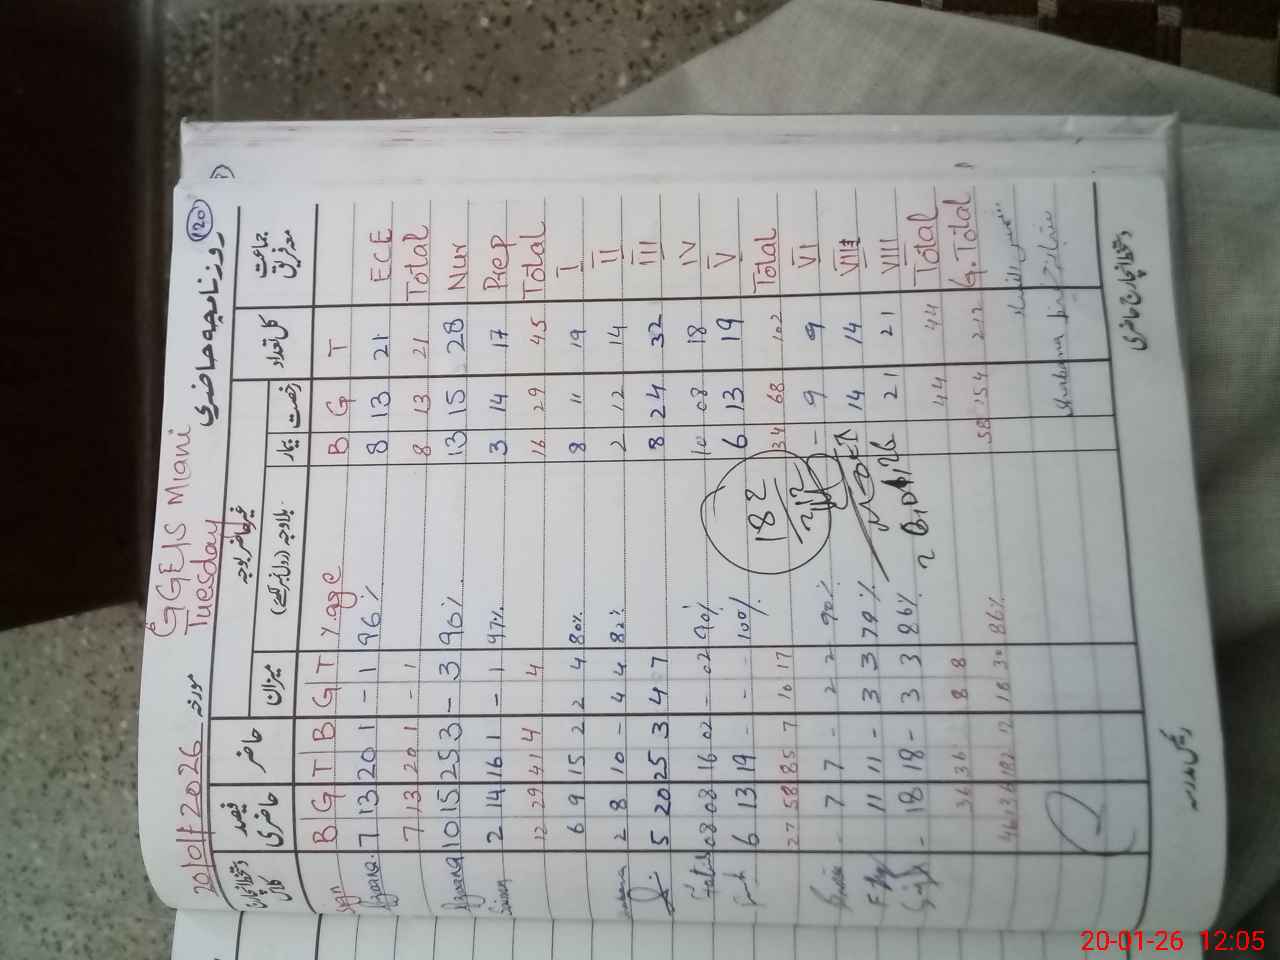 120
GGE/S Miani
20/01/2026 مورخہ Tuesday روزنامچہ حاضری
جماعت معہ فریق کل تعداد رخصت بیمار غیر حاضر بلاوجہ میزان حاضر فیصد حاضری
بلاوجہ (رول نمبر لکھیے)
T G B %.age T G B T G B Sign
ECE 21 13 8 96% 1 - 1 20 13 7
Total 21 13 8 1 - 1 20 13 7
Nur 28 15 13 90% 3 - 3 25 15 10
Prep 17 14 3 97% 1 - 1 16 14 2
Total 45 29 16 4 4 41 29 12
I 19 11 8 80% 4 2 2 15 9 6
II 14 12 2 82% 4 4 - 10 8 2
III 32 24 8 7 4 3 25 20 5
IV 18 08 10 90% 02 - 02 16 08 08
V 19 13 6 100% - - - 19 13 6
Total 102 68 34 17 10 7 85 58 27
VI 9 9 - 90% 2 2 - 7 7 -
VII 14 14 79% 3 3 - 11 11
VIII 21 21 86% 3 3 - 18 18 -
Total 44 44 8 8 36 36
G. Total 212 154 58 86% 30 18 12 182 136 46
182
212
20-01-26 12:05